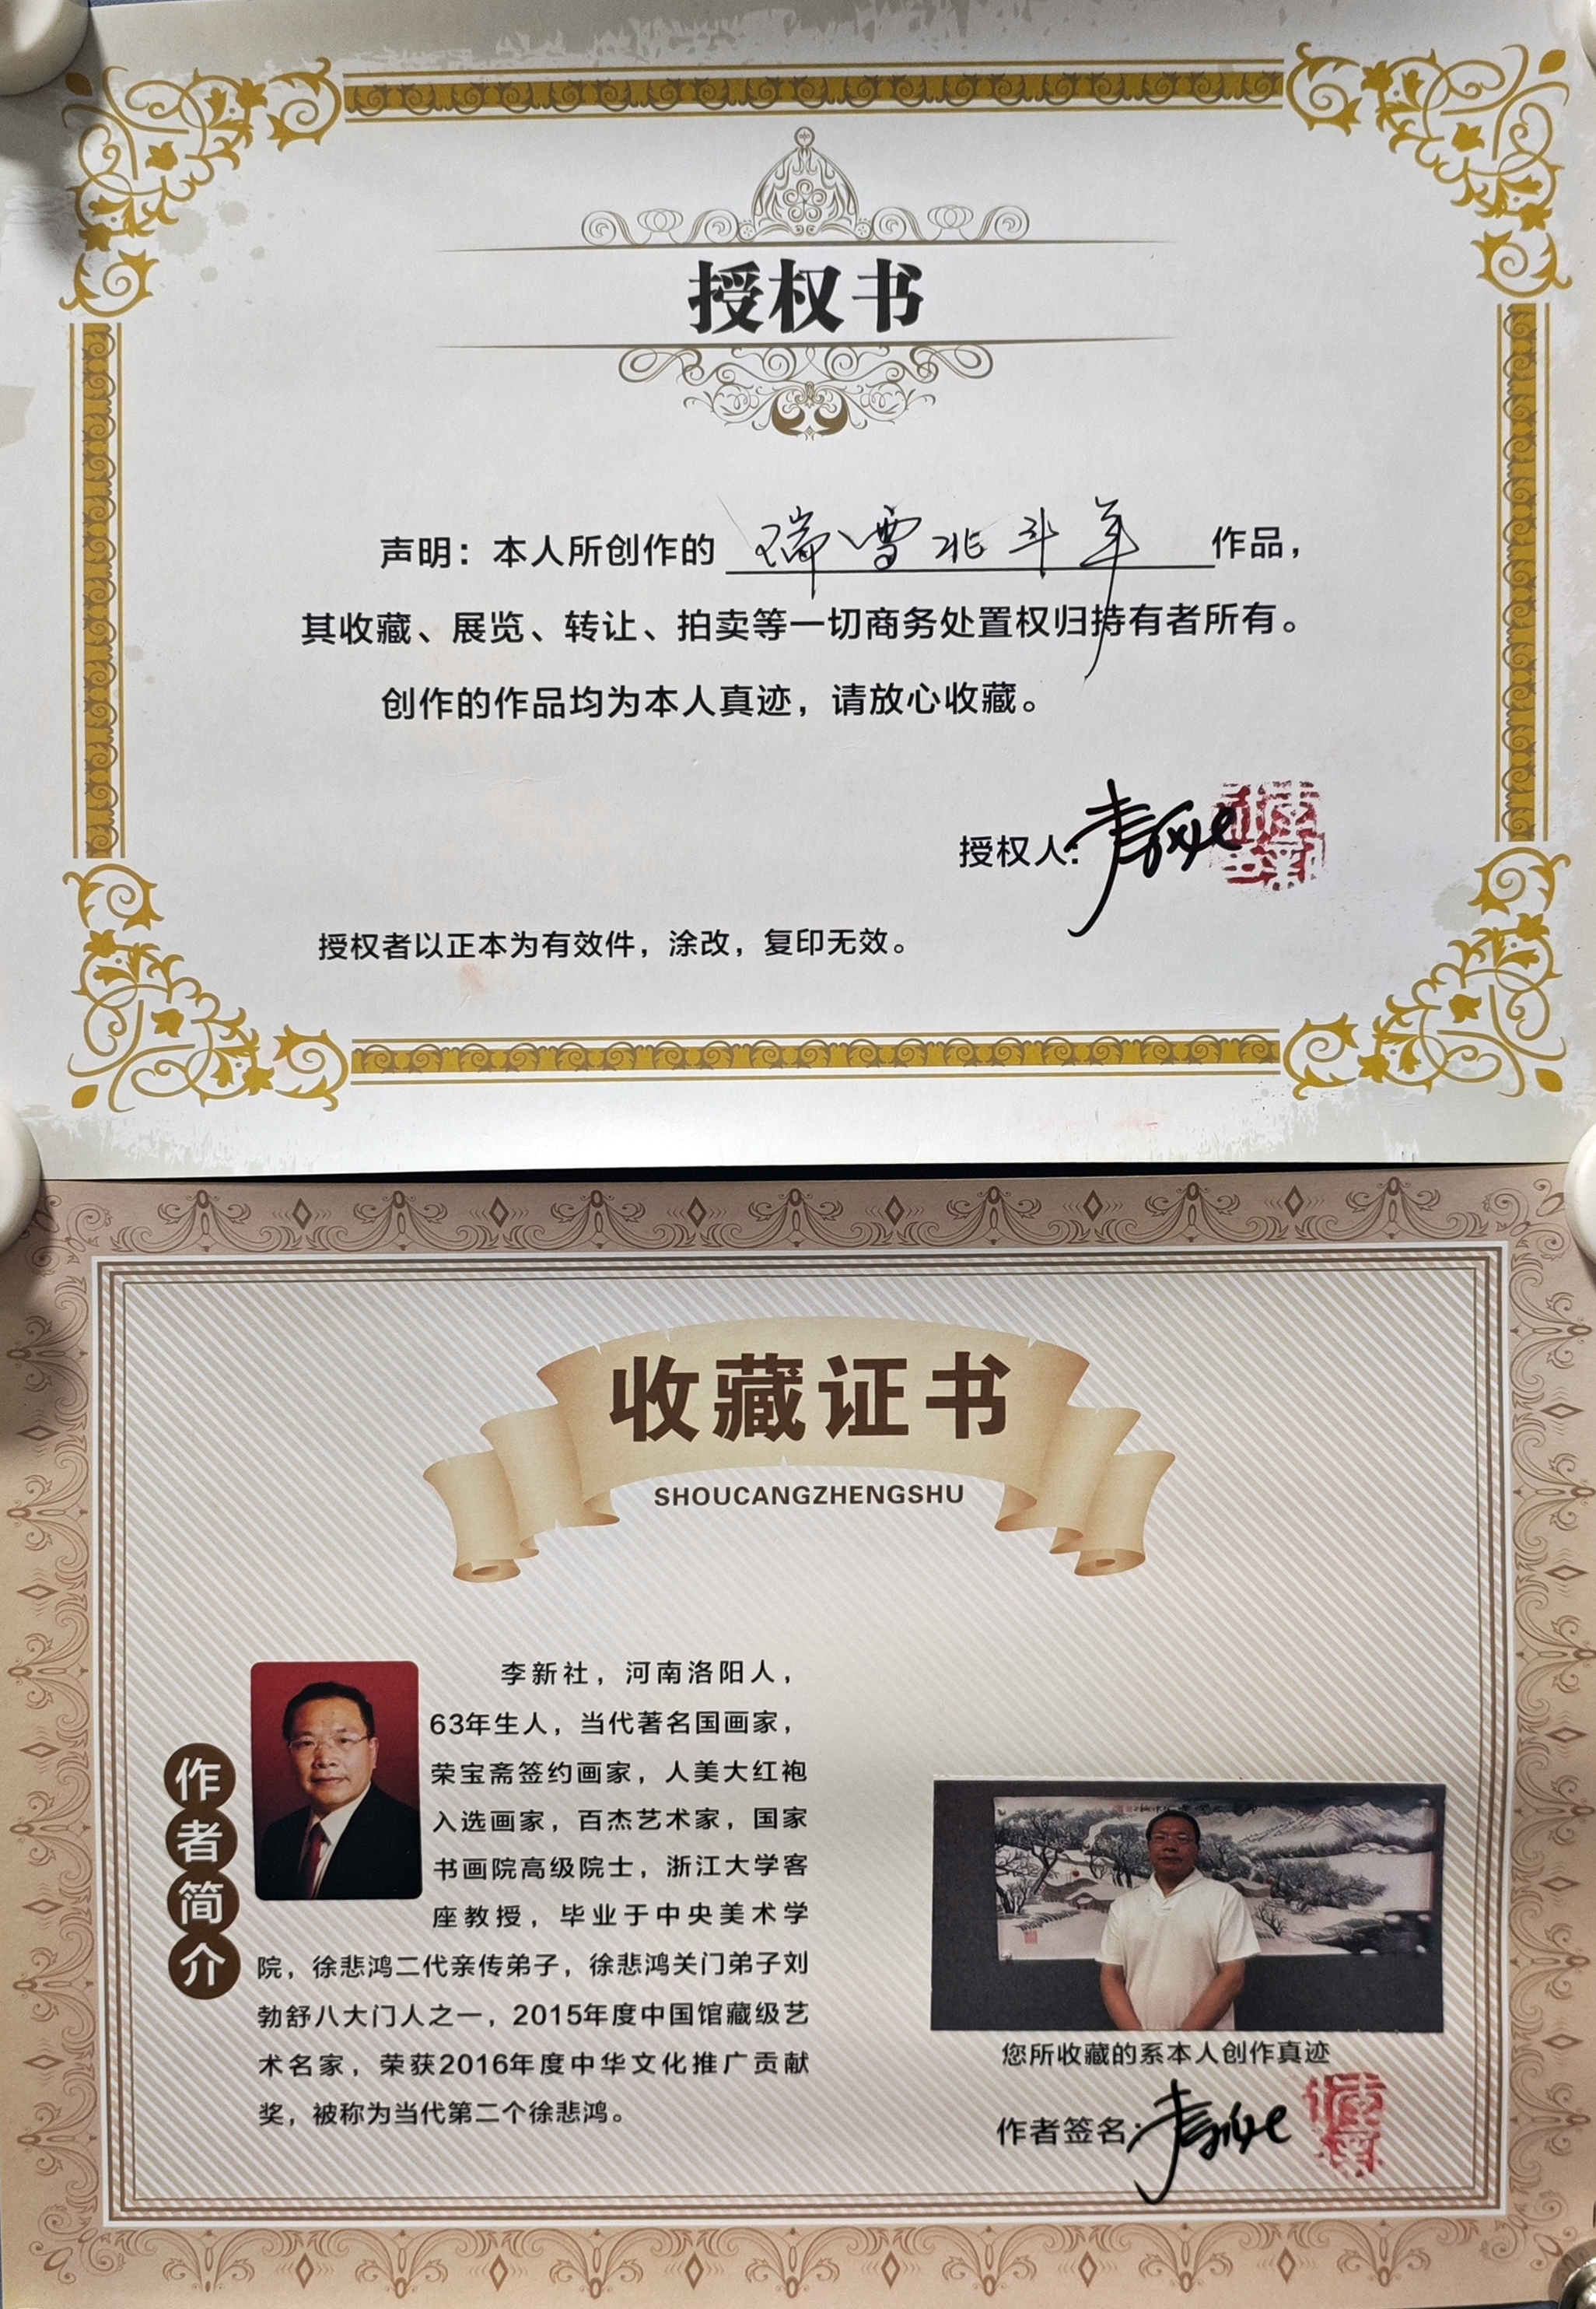 授权书
声明：本人所创作的 瑞雪兆丰年 作品，
其收藏、展览、转让、拍卖等一切商务处置权归持有者所有。
创作的作品均为本人真迹，请放心收藏。
授权人：
授权者以正本为有效件，涂改，复印无效。
收藏证书
SHOUCANGZHENGSHU
作者简介
李新社，河南洛阳人，
63年生人，当代著名国画家，
荣宝斋签约画家，人美大红袍
入选画家，百杰艺术家，国家
书画院高级院士，浙江大学客
座教授，毕业于中央美术学
院，徐悲鸿二代亲传弟子，徐悲鸿关门弟子刘
勃舒八大门人之一，2015年度中国馆藏级艺
术名家，荣获2016年度中华文化推广贡献
奖，被称为当代第二个徐悲鸿。
您所收藏的系本人创作真迹
作者签名：